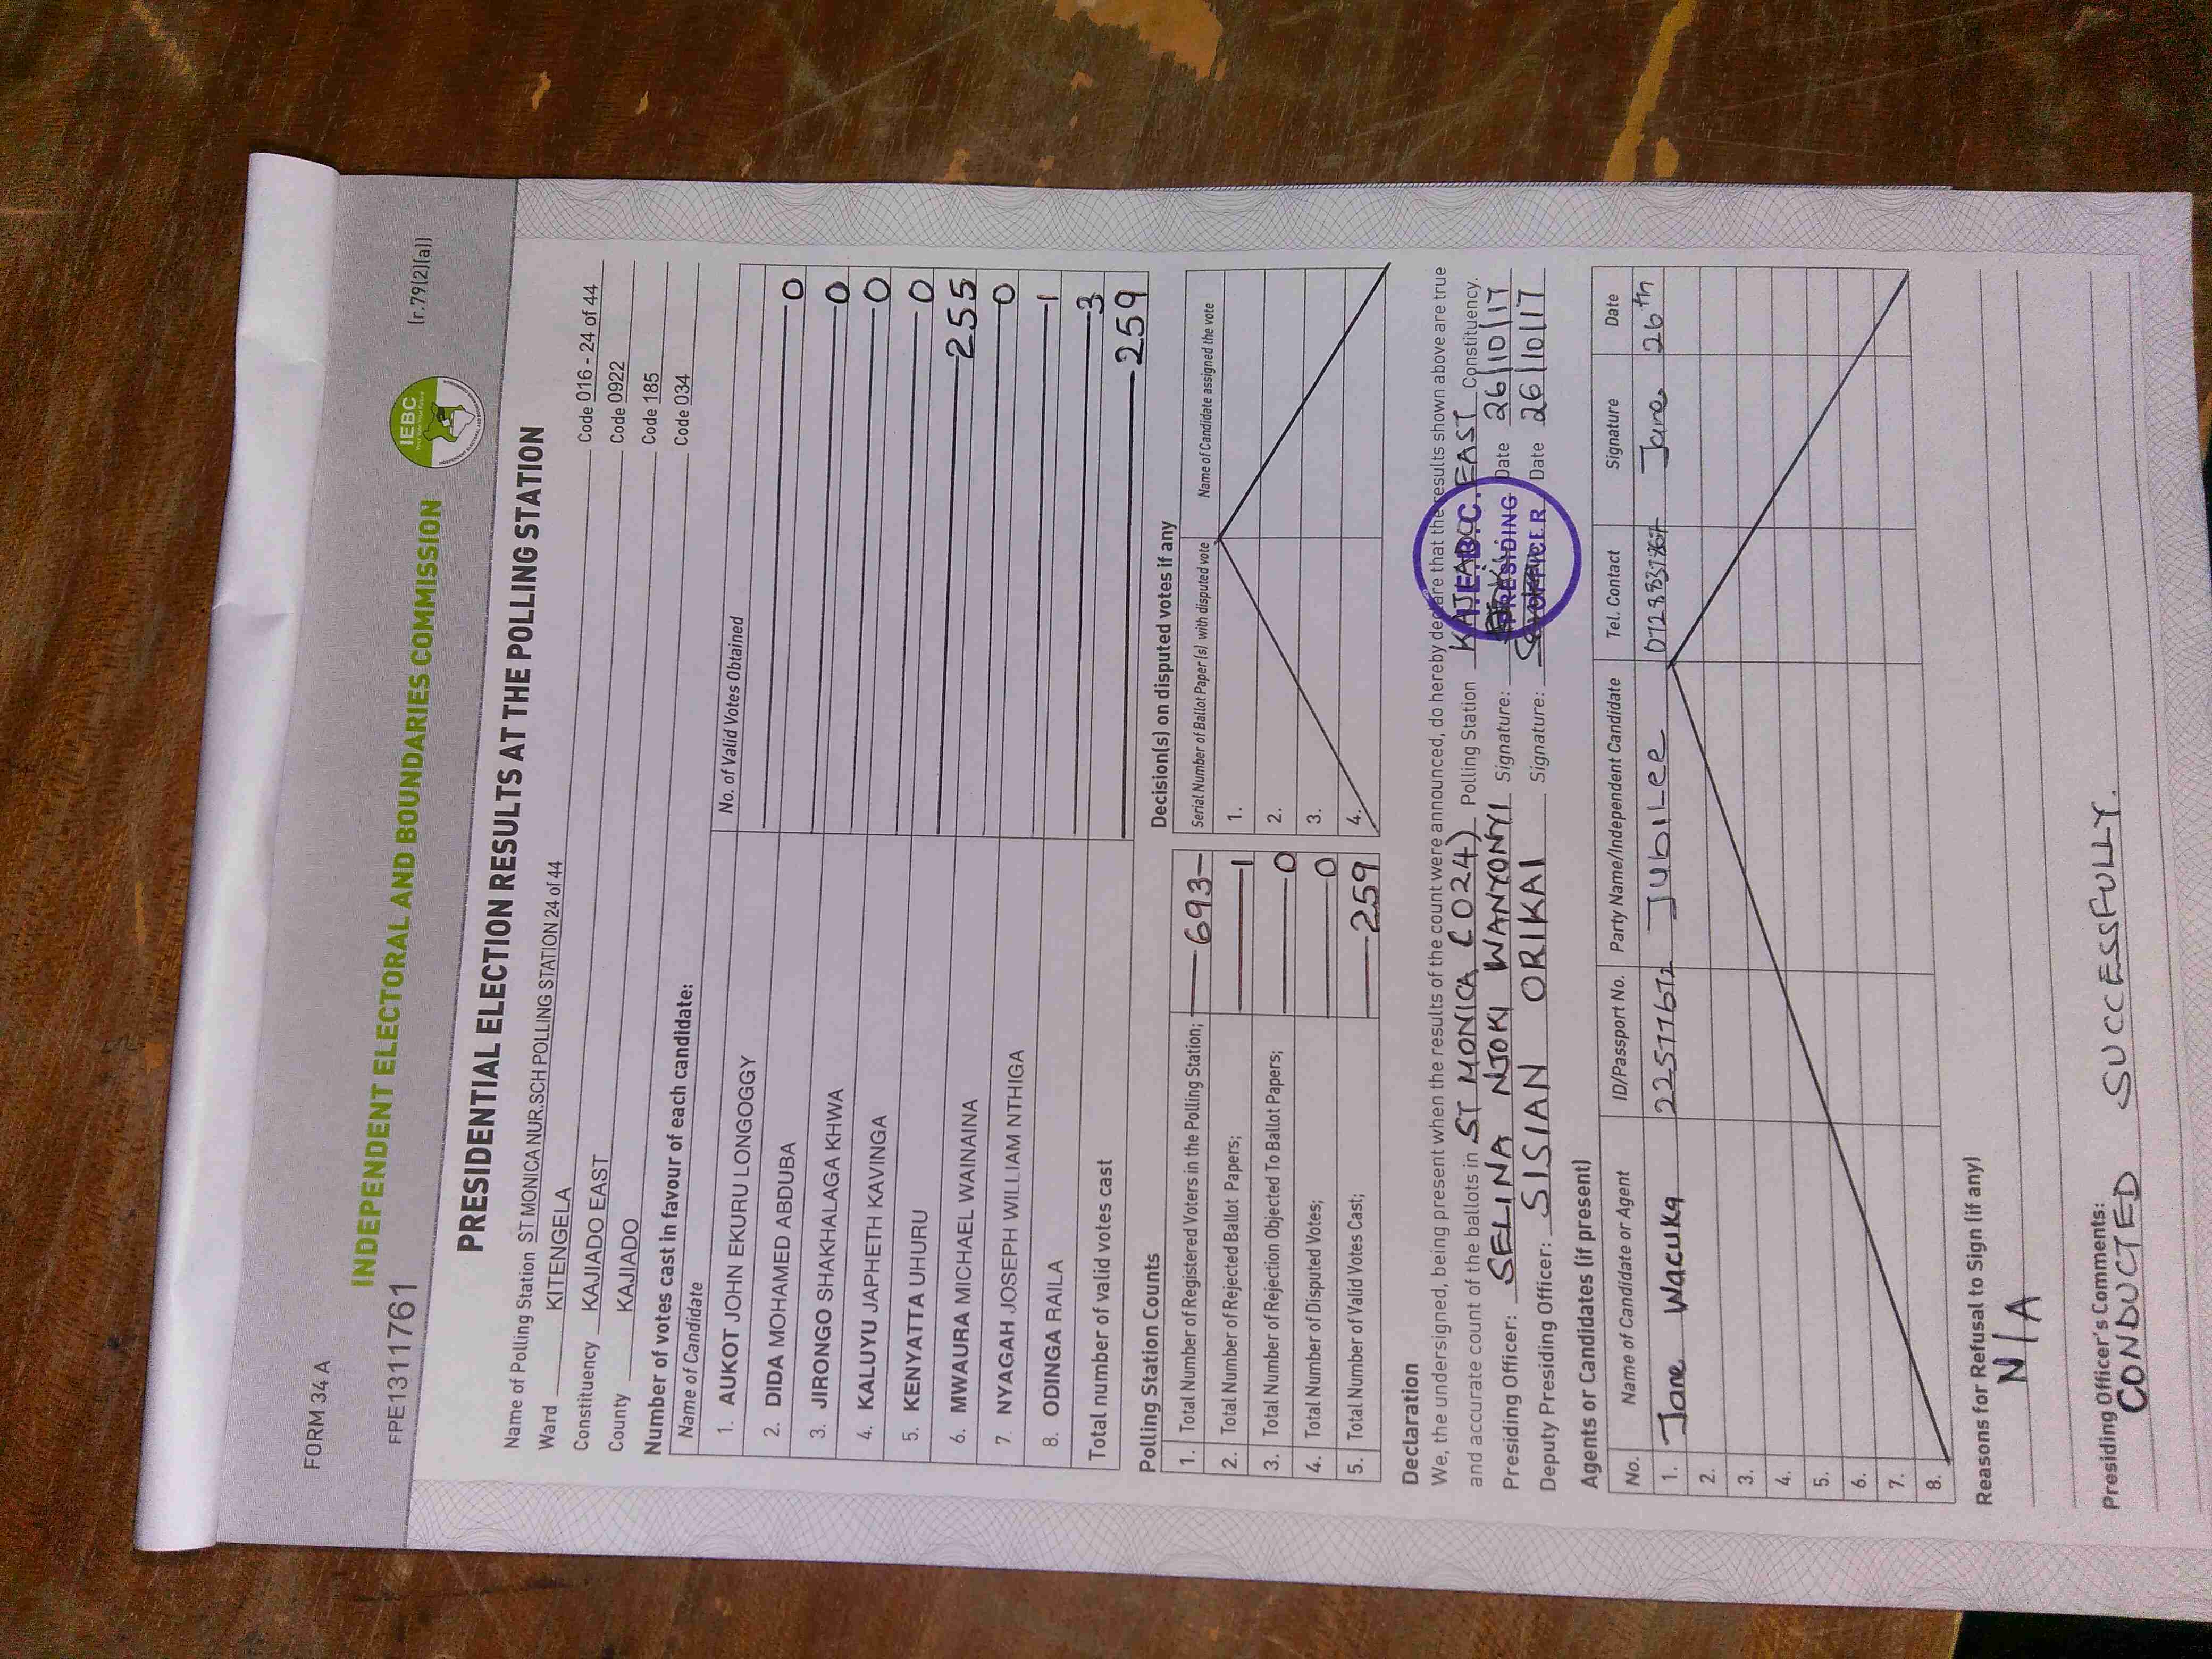 FORM 34 A
[r.79(2)(a)]
IEBC
INDEPENDENT ELECTORAL AND BOUNDARIES COMMISSION
FPE1311761
PRESIDENTIAL ELECTION RESULTS AT THE POLLING STATION
Name of Polling Station ST MONICA NUR.SCH POLLING STATION 24 of 44 Code 016 - 24 of 44
Ward KITENGELA Code 0922
Constituency KAJIADO EAST Code 185
County KAJIADO Code 034
Number of votes cast in favour of each candidate:
Name of Candidate No. of Valid Votes Obtained
1. AUKOT JOHN EKURU LONGOGGY 0
2. DIDA MOHAMED ABDUBA 0
3. JIRONGO SHAKHALAGA KHWA 0
4. KALUYU JAPHETH KAVINGA 0
5. KENYATTA UHURU 255
6. MWAURA MICHAEL WAINAINA 0
7. NYAGAH JOSEPH WILLIAM NTHIGA 1
8. ODINGA RAILA 3
Total number of valid votes cast 259
Polling Station Counts
1. Total Number of Registered Voters in the Polling Station; 693
2. Total Number of Rejected Ballot Papers; 1
3. Total Number of Rejection Objected To Ballot Papers; 0
4. Total Number of Disputed Votes; 0
5. Total Number of Valid Votes Cast; 259
Decision(s) on disputed votes if any
Serial Number of Ballot Paper (s) with disputed vote Name of Candidate assigned the vote
1.
2.
3.
4.
Declaration
We, the undersigned, being present when the results of the count were announced, do hereby declare that the results shown above are true
and accurate count of the ballots in ST MONICA (024) Polling Station KAJIADO EAST Constituency.
Presiding Officer: SELINA NJOKI WANYONYI Signature: Date 26/10/17
Deputy Presiding Officer: SISIAN ORIKAI Signature: Date 26/10/17
I.E.B.C.
PRESIDING
OFFICER
Agents or Candidates (if present)
No. Name of Candidate or Agent ID/Passport No. Party Name/Independent Candidate Tel. Contact Signature Date
1. Jane Wacuka JubiLee Jane 26th
2.
3.
4.
5.
6.
7.
8.
Reasons for Refusal to Sign (if any)
N/A
Presiding Officer's Comments:
CONDUCTED SUCCESSFULLY.